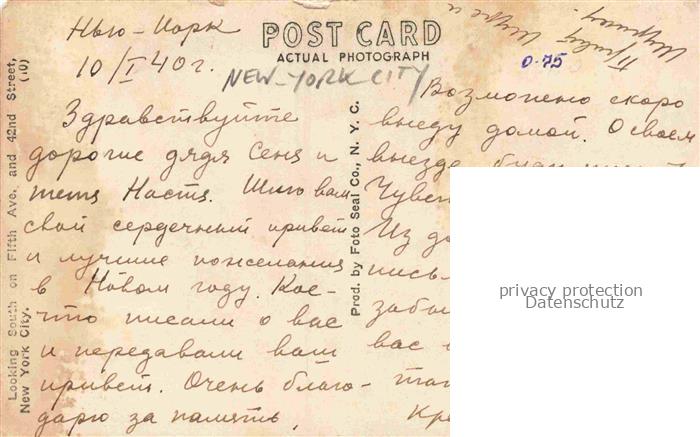 Нью-Йорк
10/I 40 г.
POST CARD
ACTUAL PHOTOGRAPH
NEW-YORK CITY
0-75
Привет Шуре и
Шурику.
Looking South on Fifth Ave., and 42nd Street,
New York City. (10)
Prod. by Foto Seal Co., N. Y. C.
Здравствуйте
дорогие дядя Сеня и
тетя Настя. Шлю вам
свой сердечный привет
и лучшие пожелания
в Новом году. Кое-
что писали о вас
и передавали ваш
привет. Очень благо-
дарю за память.
Возможно скоро
выеду домой. О своем
выезде
Из
пись
забы
вас
privacy protection
Datenschutz